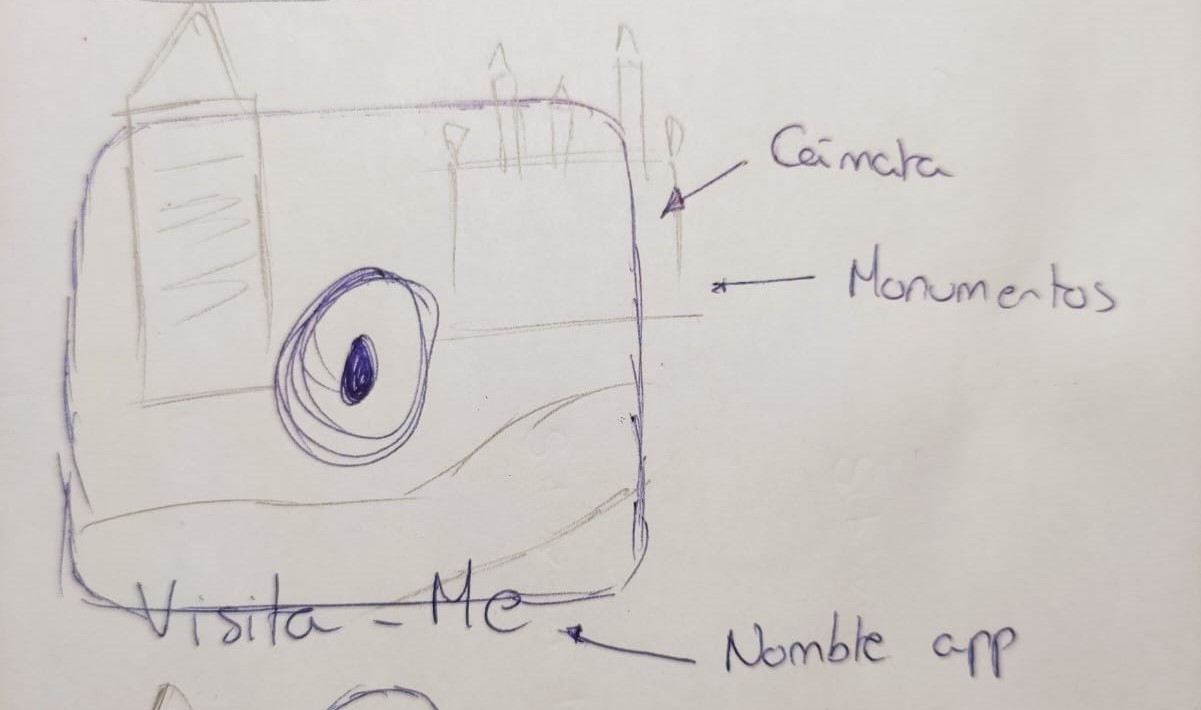 Cámara
Monumentos
Visita - Me
Nombre app